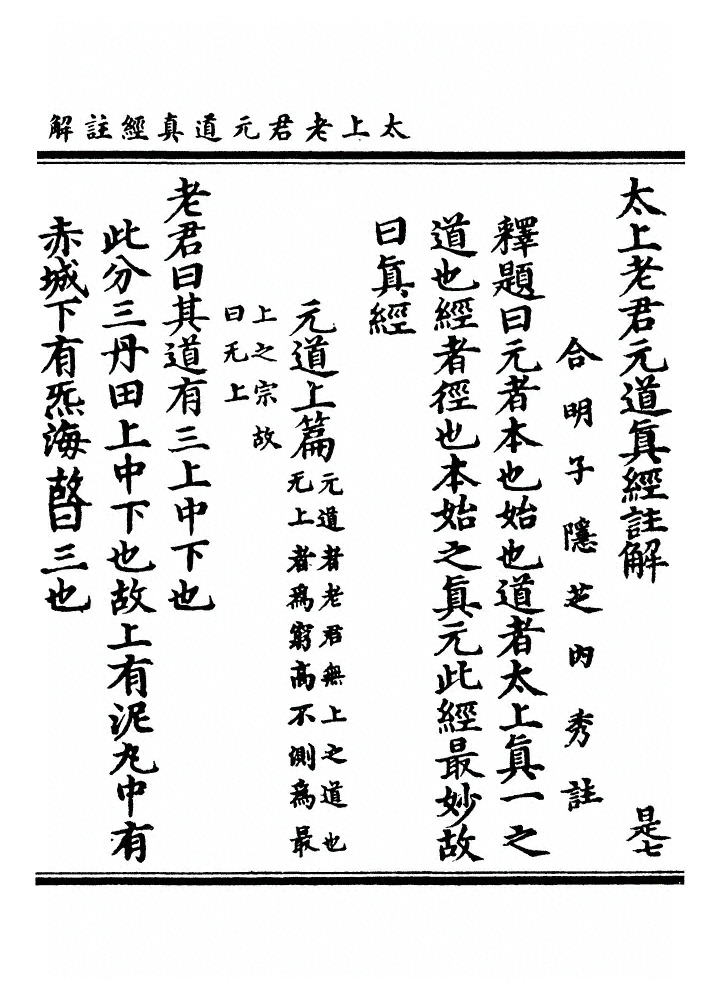 太上老君元道真經註解
太上老君元道眞經註解　是七
合明子隱芝內秀註
釋題曰元者本也始也道者太上眞一之
道也經者徑也本始之眞元此經最妙故
曰眞經
元道上篇
元道者老君無上之道也
无上者為窮高不測為最
上之宗故
曰无上
老君曰其道有三上中下也
此分三丹田上中下也故上有泥丸中有
赤城下有炁海故曰三也